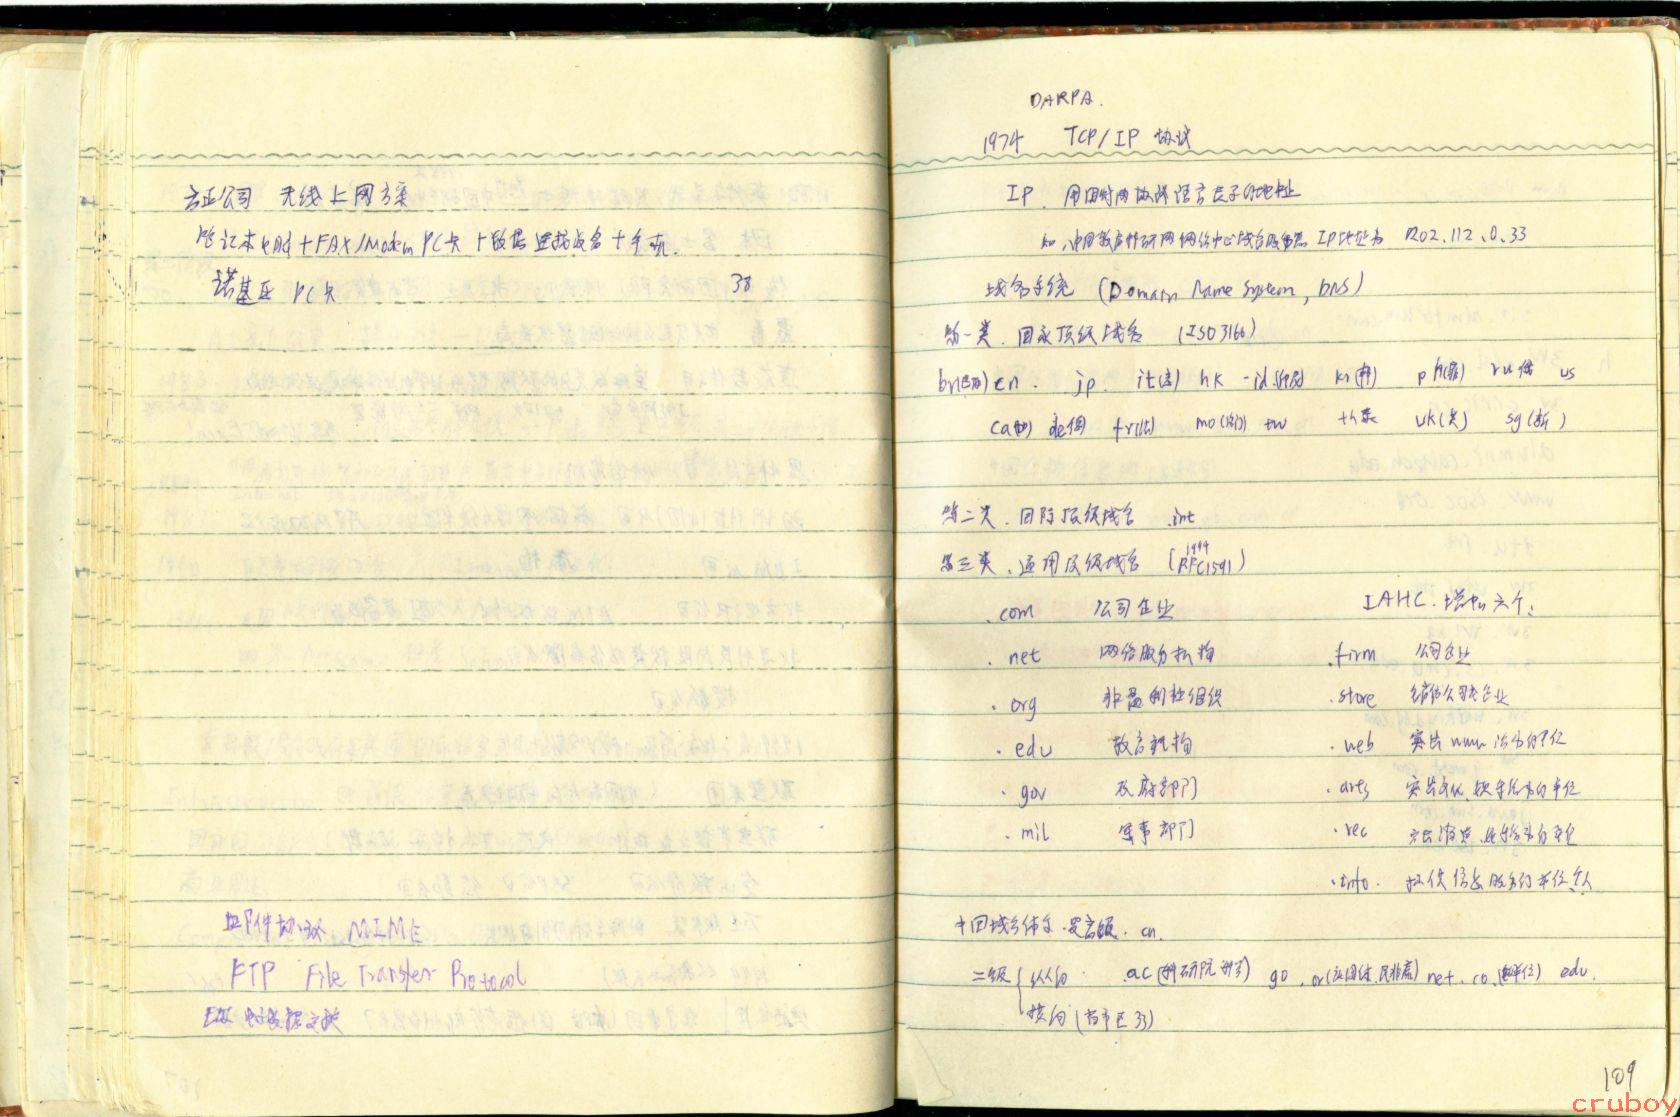 方正公司 无线上网方案
笔记本电脑+FAX/Modem PC卡+数据连接设备+手机.
诺基亚 PC卡 38
邮件协议 MIME
FTP File Transfer Protocol
电子数据交换
DARPA.
1974 TCP/IP 协议
IP. 用因特网协议语言表示的地址
如,中国教育科研网网络中心域名服务器 IP地址为 202.112.0.33
域名系统 (Domain Name System, DNS)
第一类. 国家顶级域名 (ISO3166)
br(巴西) cn. jp. it(意) hk id kr(韩) ph(菲) ru俄 us
ca(加) de德 fr(法) mo(澳门) tw th泰 uk(英) sg(新)
第二类. 国际顶级域名 .int
第三类. 通用顶级域名 (1994 RFC1591)
.com 公司企业 IAHC.增加六个:
.net 网络服务机构 .firm 公司企业
.org 非盈利性组织 .store 销售公司或企业
.edu 教育机构 .web 突出www活动的单位
.gov 政府部门 .arts 突出文化、娱乐活动的单位
.mil 军事部门 .rec 突出消遣、娱乐活动的单位
.info. 提供信息服务的单位
中国域名体系.最高级.cn.
二级 { 纵向 .ac(科研院所) go .or net .co edu.
横向(省市区33)
109
cruboy